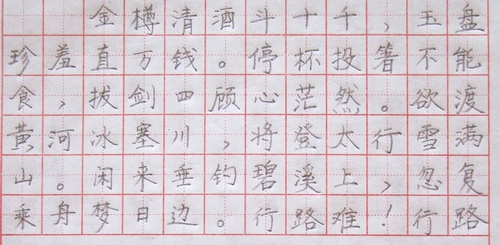 金樽清酒斗十千，玉盘
珍羞直万钱。停杯投箸不能
食，拔剑四顾心茫然。欲渡
黄河冰塞川，将登太行雪满
山。闲来垂钓碧溪上，忽复
乘舟梦日边。行路难！行路